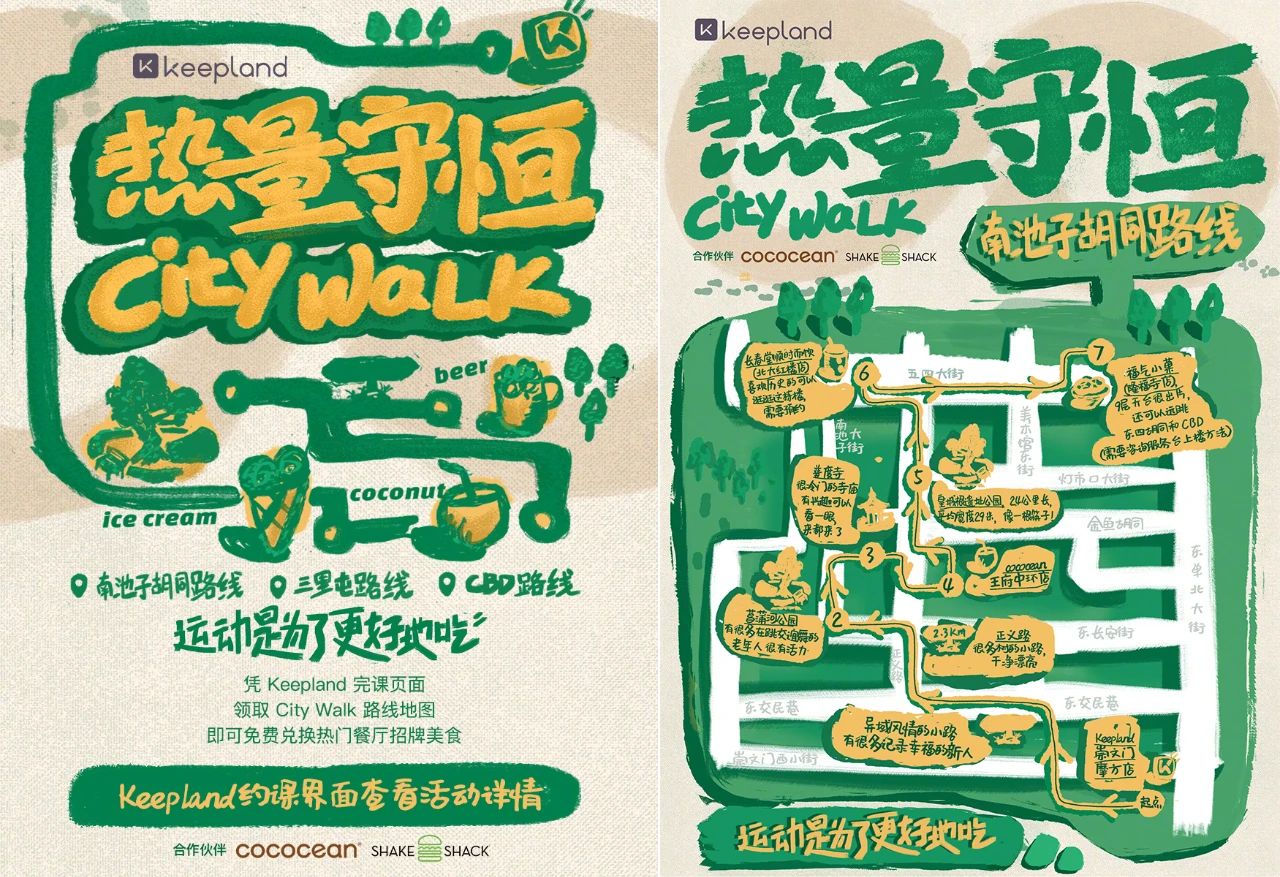 keepland
热量守恒
City Walk
beer
ice cream
coconut
南池子胡同路线
三里屯路线
CBD路线
运动是为了更好地吃
凭 Keepland 完课页面
领取 City Walk 路线地图
即可免费兑换热门餐厅招牌美食
Keepland约课界面查看活动详情
合作伙伴 cococean® SHAKE SHACK
keepland
热量守恒
City Walk
南池子胡同路线
合作伙伴 cococean® SHAKE SHACK
长春堂顺时而饮
(北大红楼店)
喜欢历史的可以
逛逛这栋楼,
需要预约
6
五四大街
7
福气小菓
(隆福寺店)
9层天台很出片,
还可以远眺
东四胡同和CBD
(需要咨询服务台上楼方法)
南池子大街
美术馆东街
普度寺
很冷门的寺庙
有兴趣可以
看一眼,
来都来了
5
皇城根遗址公园, 2.4公里长,
平均宽度29米, 像一根筷子!
灯市口大街
金鱼胡同
3
4
cococean
王府中环店
东单北大街
菖蒲河公园
有很多在跳交谊舞的
老年人很有活力
2
正义路
2.3KM
正义路
很多树的小路,
干净漂亮
东长安街
东交民巷
东交民巷
异域风情的小路
有很多记录幸福的新人
Keepland
崇文门
摩方店
崇文门西小街
起点
运动是为了更好地吃